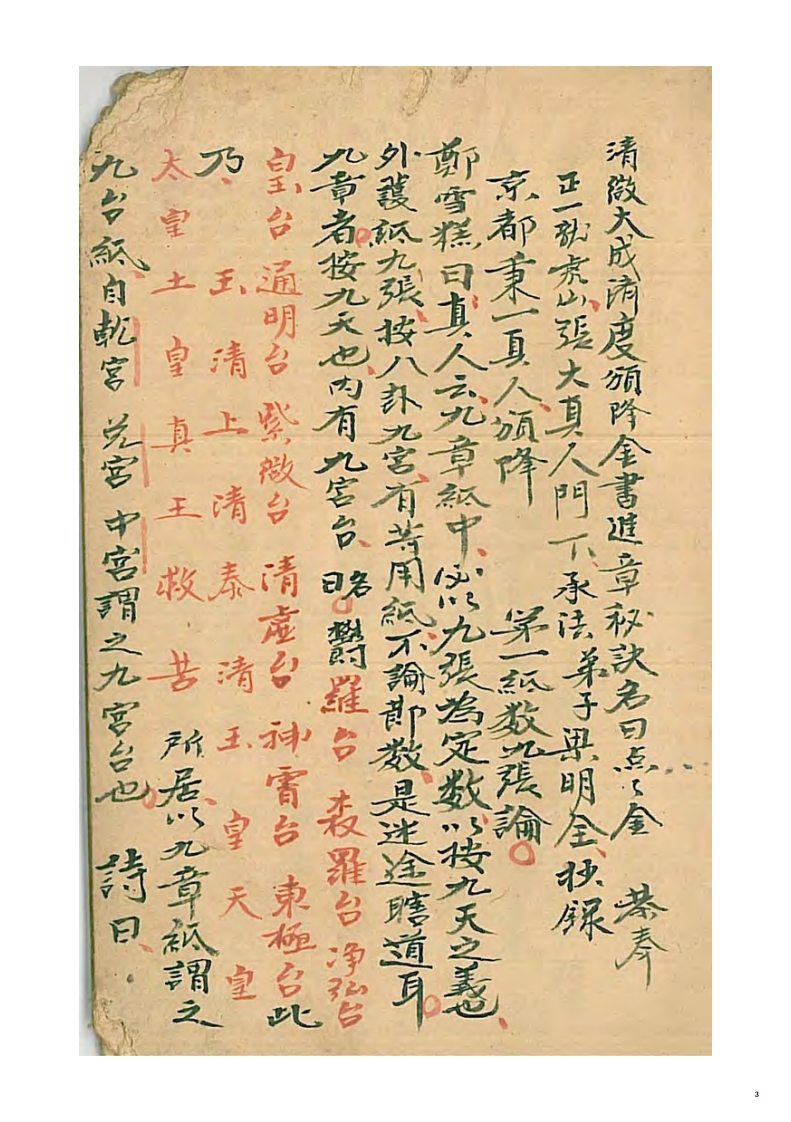 清微大成済度頒降金書進章秘訣名曰点々金 恭奉
正一龍虎山張大真人門下承法弟子梁明全抄録
京都秉一真人頒降 第一紙数九張論
鄭雪糕曰真人云九章紙中必以九張為定数以按九天之義也
外護紙九張按八卦九宮有等用紙不論部数是迷途瞎道耳
九章者按九天也内有九宮台名曰欝羅台 森羅台 净弘台
皇台 通明台 紫微台 清虚台 神霄台 東極台此
乃 玉清上清泰清玉皇天皇
太皇土皇真王救苦所居以九章紙謂之
九台紙自乾宮 兌宮 中宮謂之九宮台也 詩曰
3